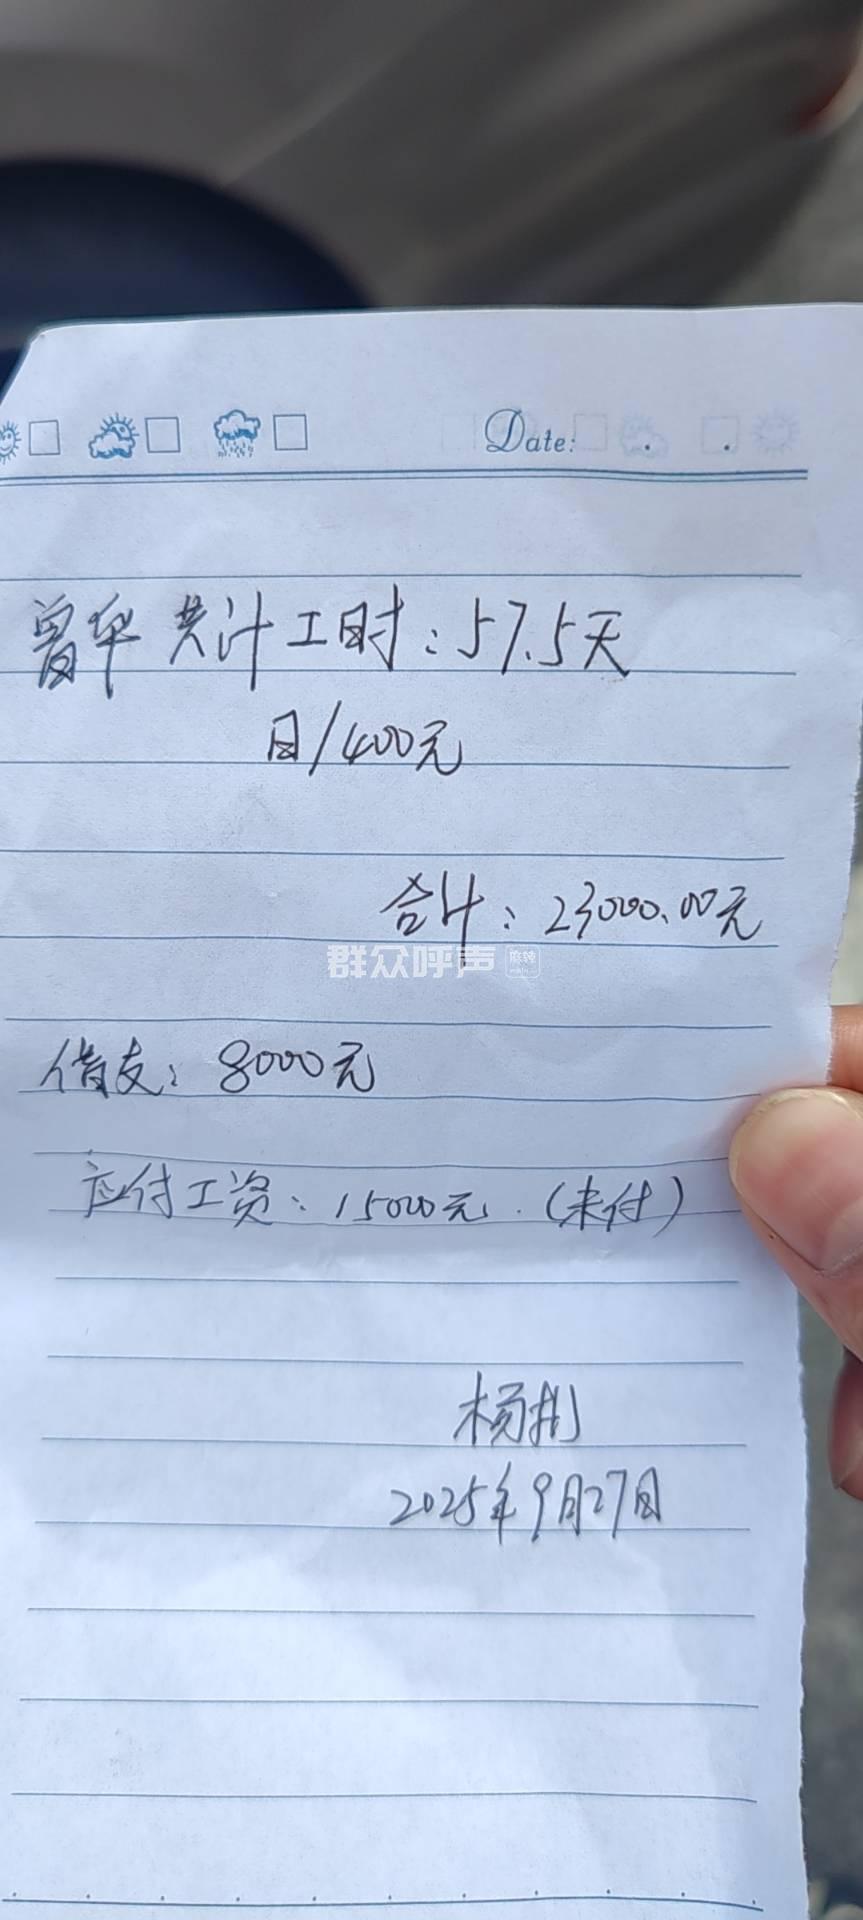 Date:
曾华 共计工时:57.5天
日/400元
合计:23000.00元
群众呼声 麻辣
借支:8000元
应付工资:15000元.(未付)
杨彬
2025年9月27日